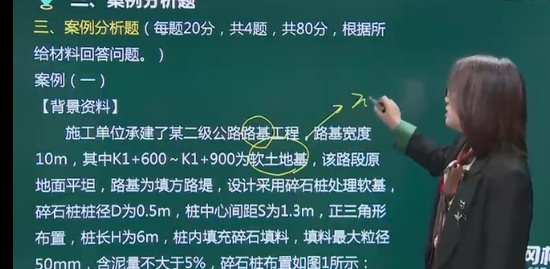 二、案例分析题
三、案例分析题（每题20分，共4题，共80分，根据所
给材料回答问题。）
案例（一）
【背景资料】
施工单位承建了某二级公路路基工程，路基宽度
10m，其中K1+600～K1+900为软土地基，该路段原
地面平坦，路基为填方路堤，设计采用碎石桩处理软基，
碎石桩桩径D为0.5m，桩中心间距S为1.3m，正三角形
布置，桩长H为6m，桩内填充碎石填料，填料最大粒径
50mm，含泥量不大于5%，碎石桩布置如图1所示：